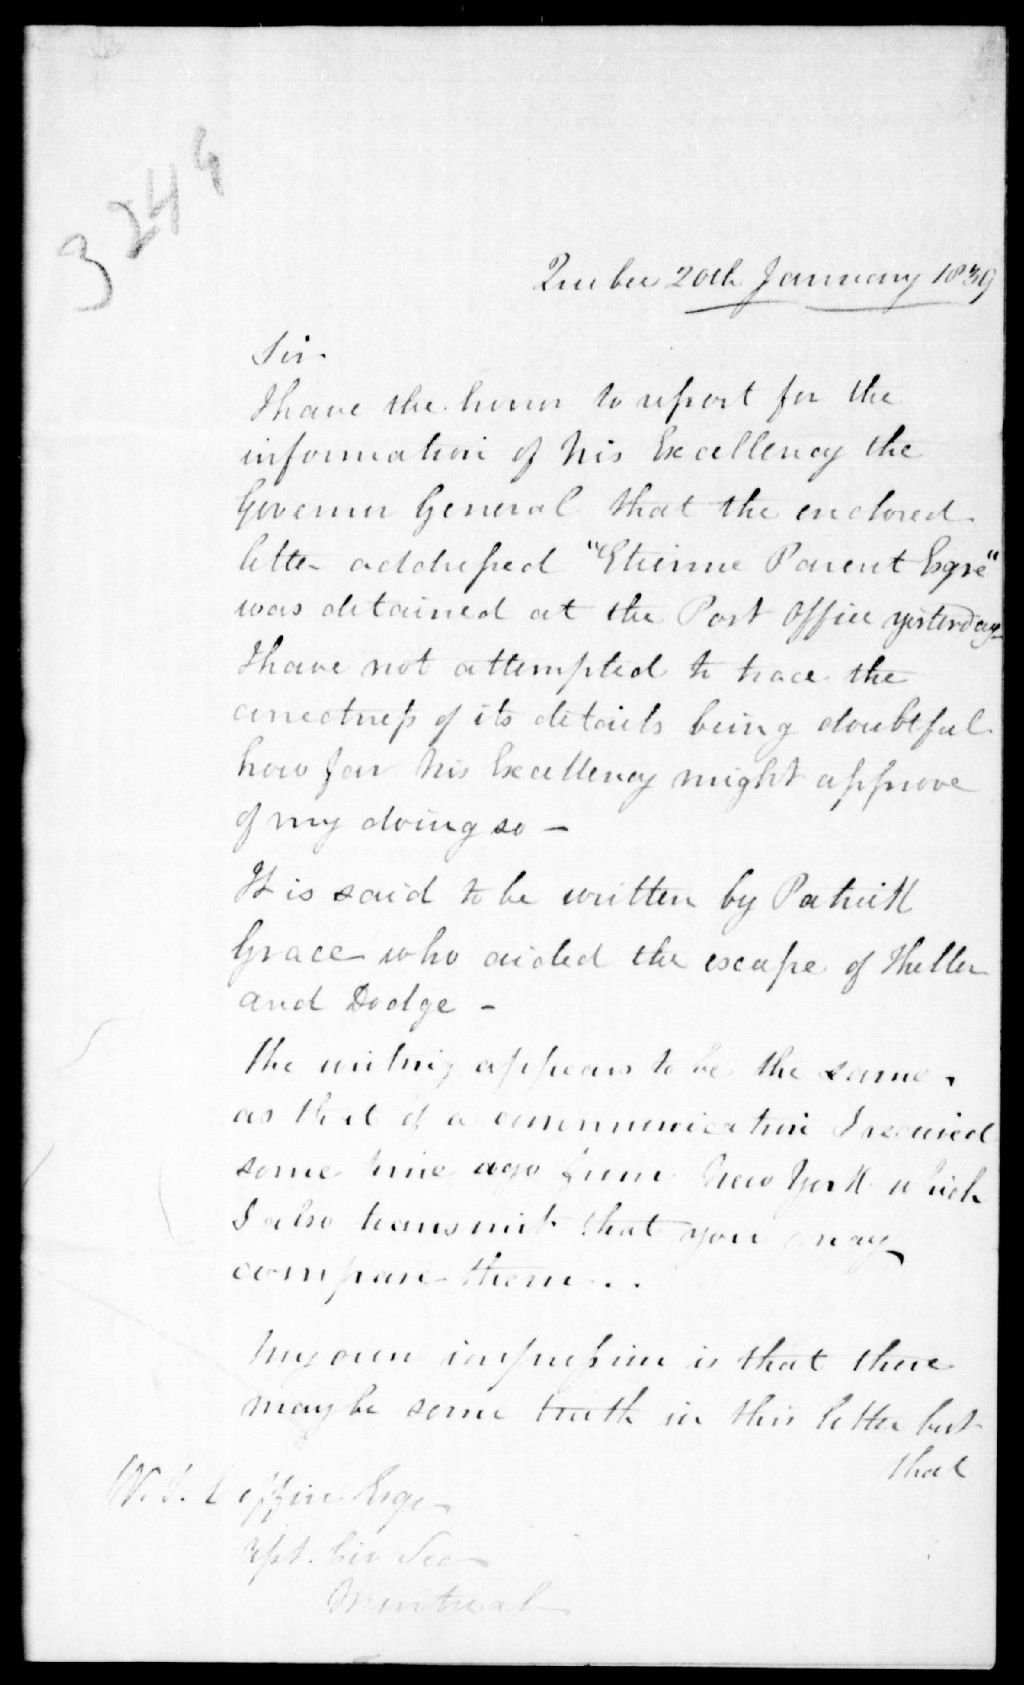 3244
Quebec 20th January 1839
Sir.
I have the honor to report for the
information of His Excellency the
Governor General that the enclosed
letter addressed "Etienne Parent Esqre"
was detained at the Post Office yesterday
I have not attempted to trace the
correctness of its details being doubtful
how far His Excellency might approve
of my doing so —
It is said to be written by Patrick
Grace who aided the escape of Theller
and Dodge —
The writing appears to be the same.
as that of a communication I received
some time ago from New York which
I also transmit that you may
compare them . .
My own impression is that there
may be some truth in this letter but
that
W. J. Goffin Esqr
Asst. Civ Sec
Montreal